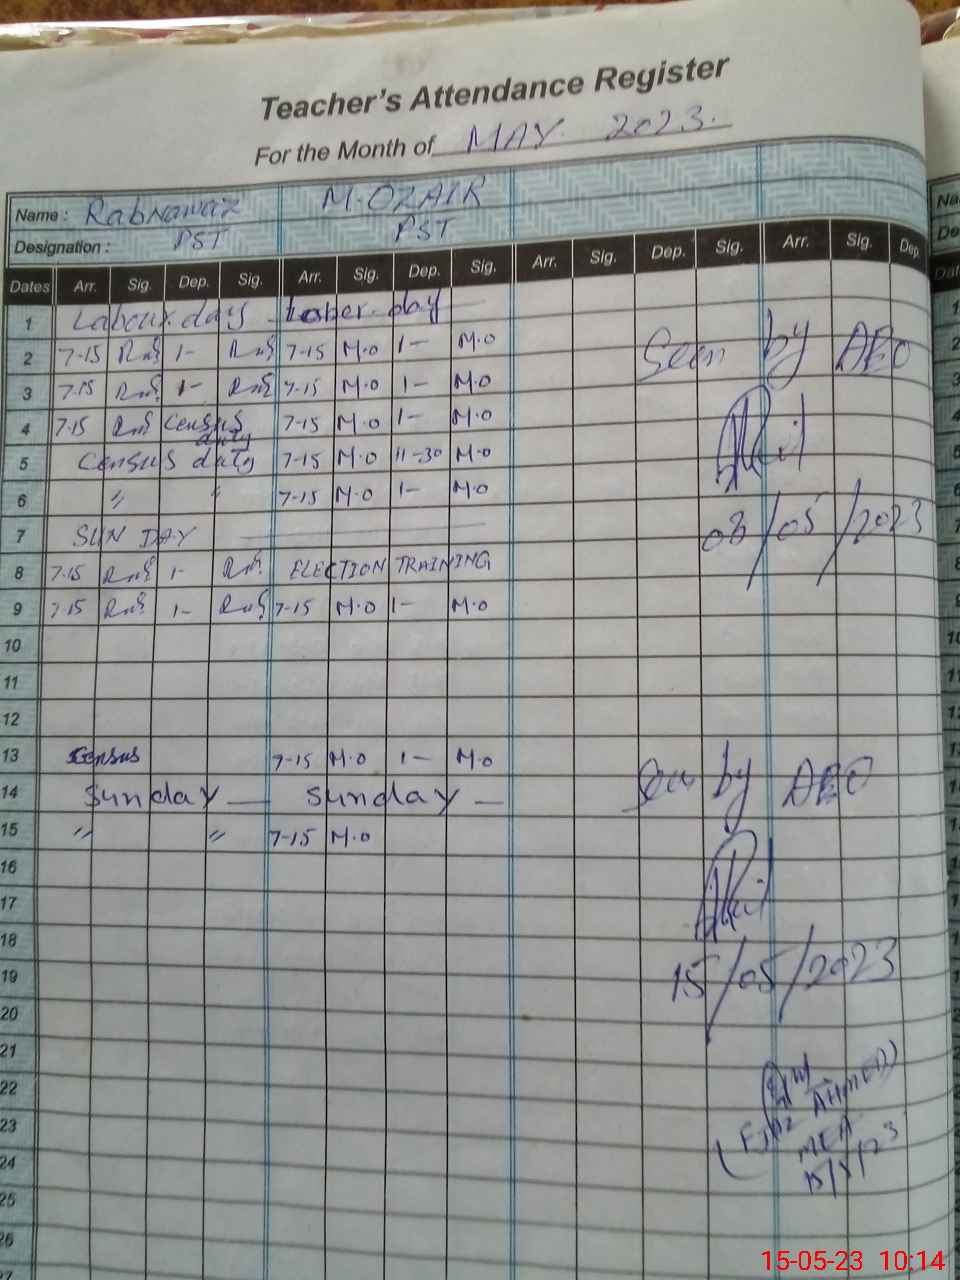 Teacher's Attendance Register
For the Month of MAY 2023.
Name : Rabnawaz M.OZAIR
Designation : PST PST
Dates Arr. Sig. Dep. Sig. Arr. Sig. Dep. Sig. Arr. Sig. Dep. Sig. Arr. Sig. Dep.
1 Labour day Laber day
2 7-15 1- 7-15 M.O 1- M.O
Seen by AEO
3 7-15 1- 7-15 M.O 1- M.O
4 7-15 Census duty 7-15 M.O 1- M.O
5 Census duty 7-15 M.O 11-30 M.O
6 " " 7-15 M.O 1- M.O
7 SUNDAY
08/05/2023
8 7-15 1- ELECTION TRAINING
9 7-15 1- 7-15 M.O 1- M.O
10
11
12
13 Census 7-15 M.O 1- M.O
Seen by AEO
14 Sunday Sunday
15 " " 7-15 M.O
16
17
18
19
15/05/2023
20
21
22
23
(EJAZ AHMED)
MEA
24
15/5/23
25
26
27
15-05-23 10:14